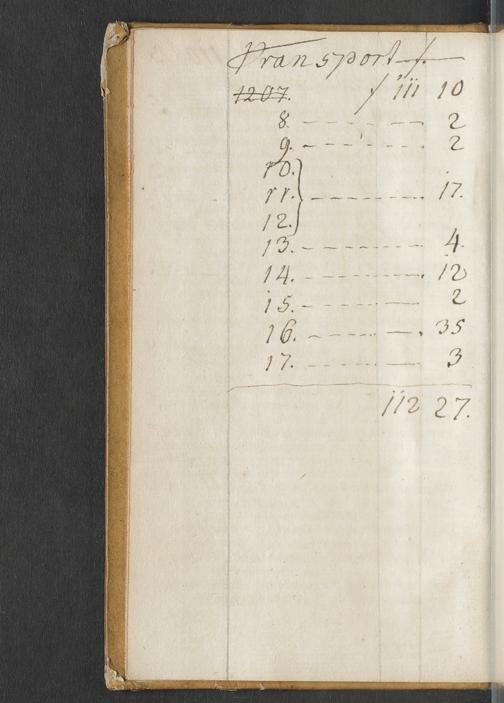 Transport
1207. / 111 10
8. - - - - - - 2
9. - - - - - - 2
10.
11. - - - - - - 17.
12.
13. - - - - - - 4.
14. - - - - - - 12
15. - - - - - - 2
16. - - - - - - 35
17. - - - - - - 3
112 27.